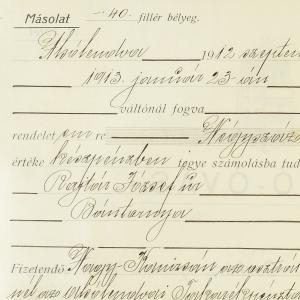 Másolat -40- fillér bélyeg.
Alsólendva 1912 szeptem
1913. január 23-án
váltónál fogva
rendelet em re Négyszáz
értéke készpénzben jegye számolásba tud
Rajtár József úr
Bántornya
Fizetendő Nagy-Kanizsán az osztrá
nál az Alsólendvai Takarékpénzt